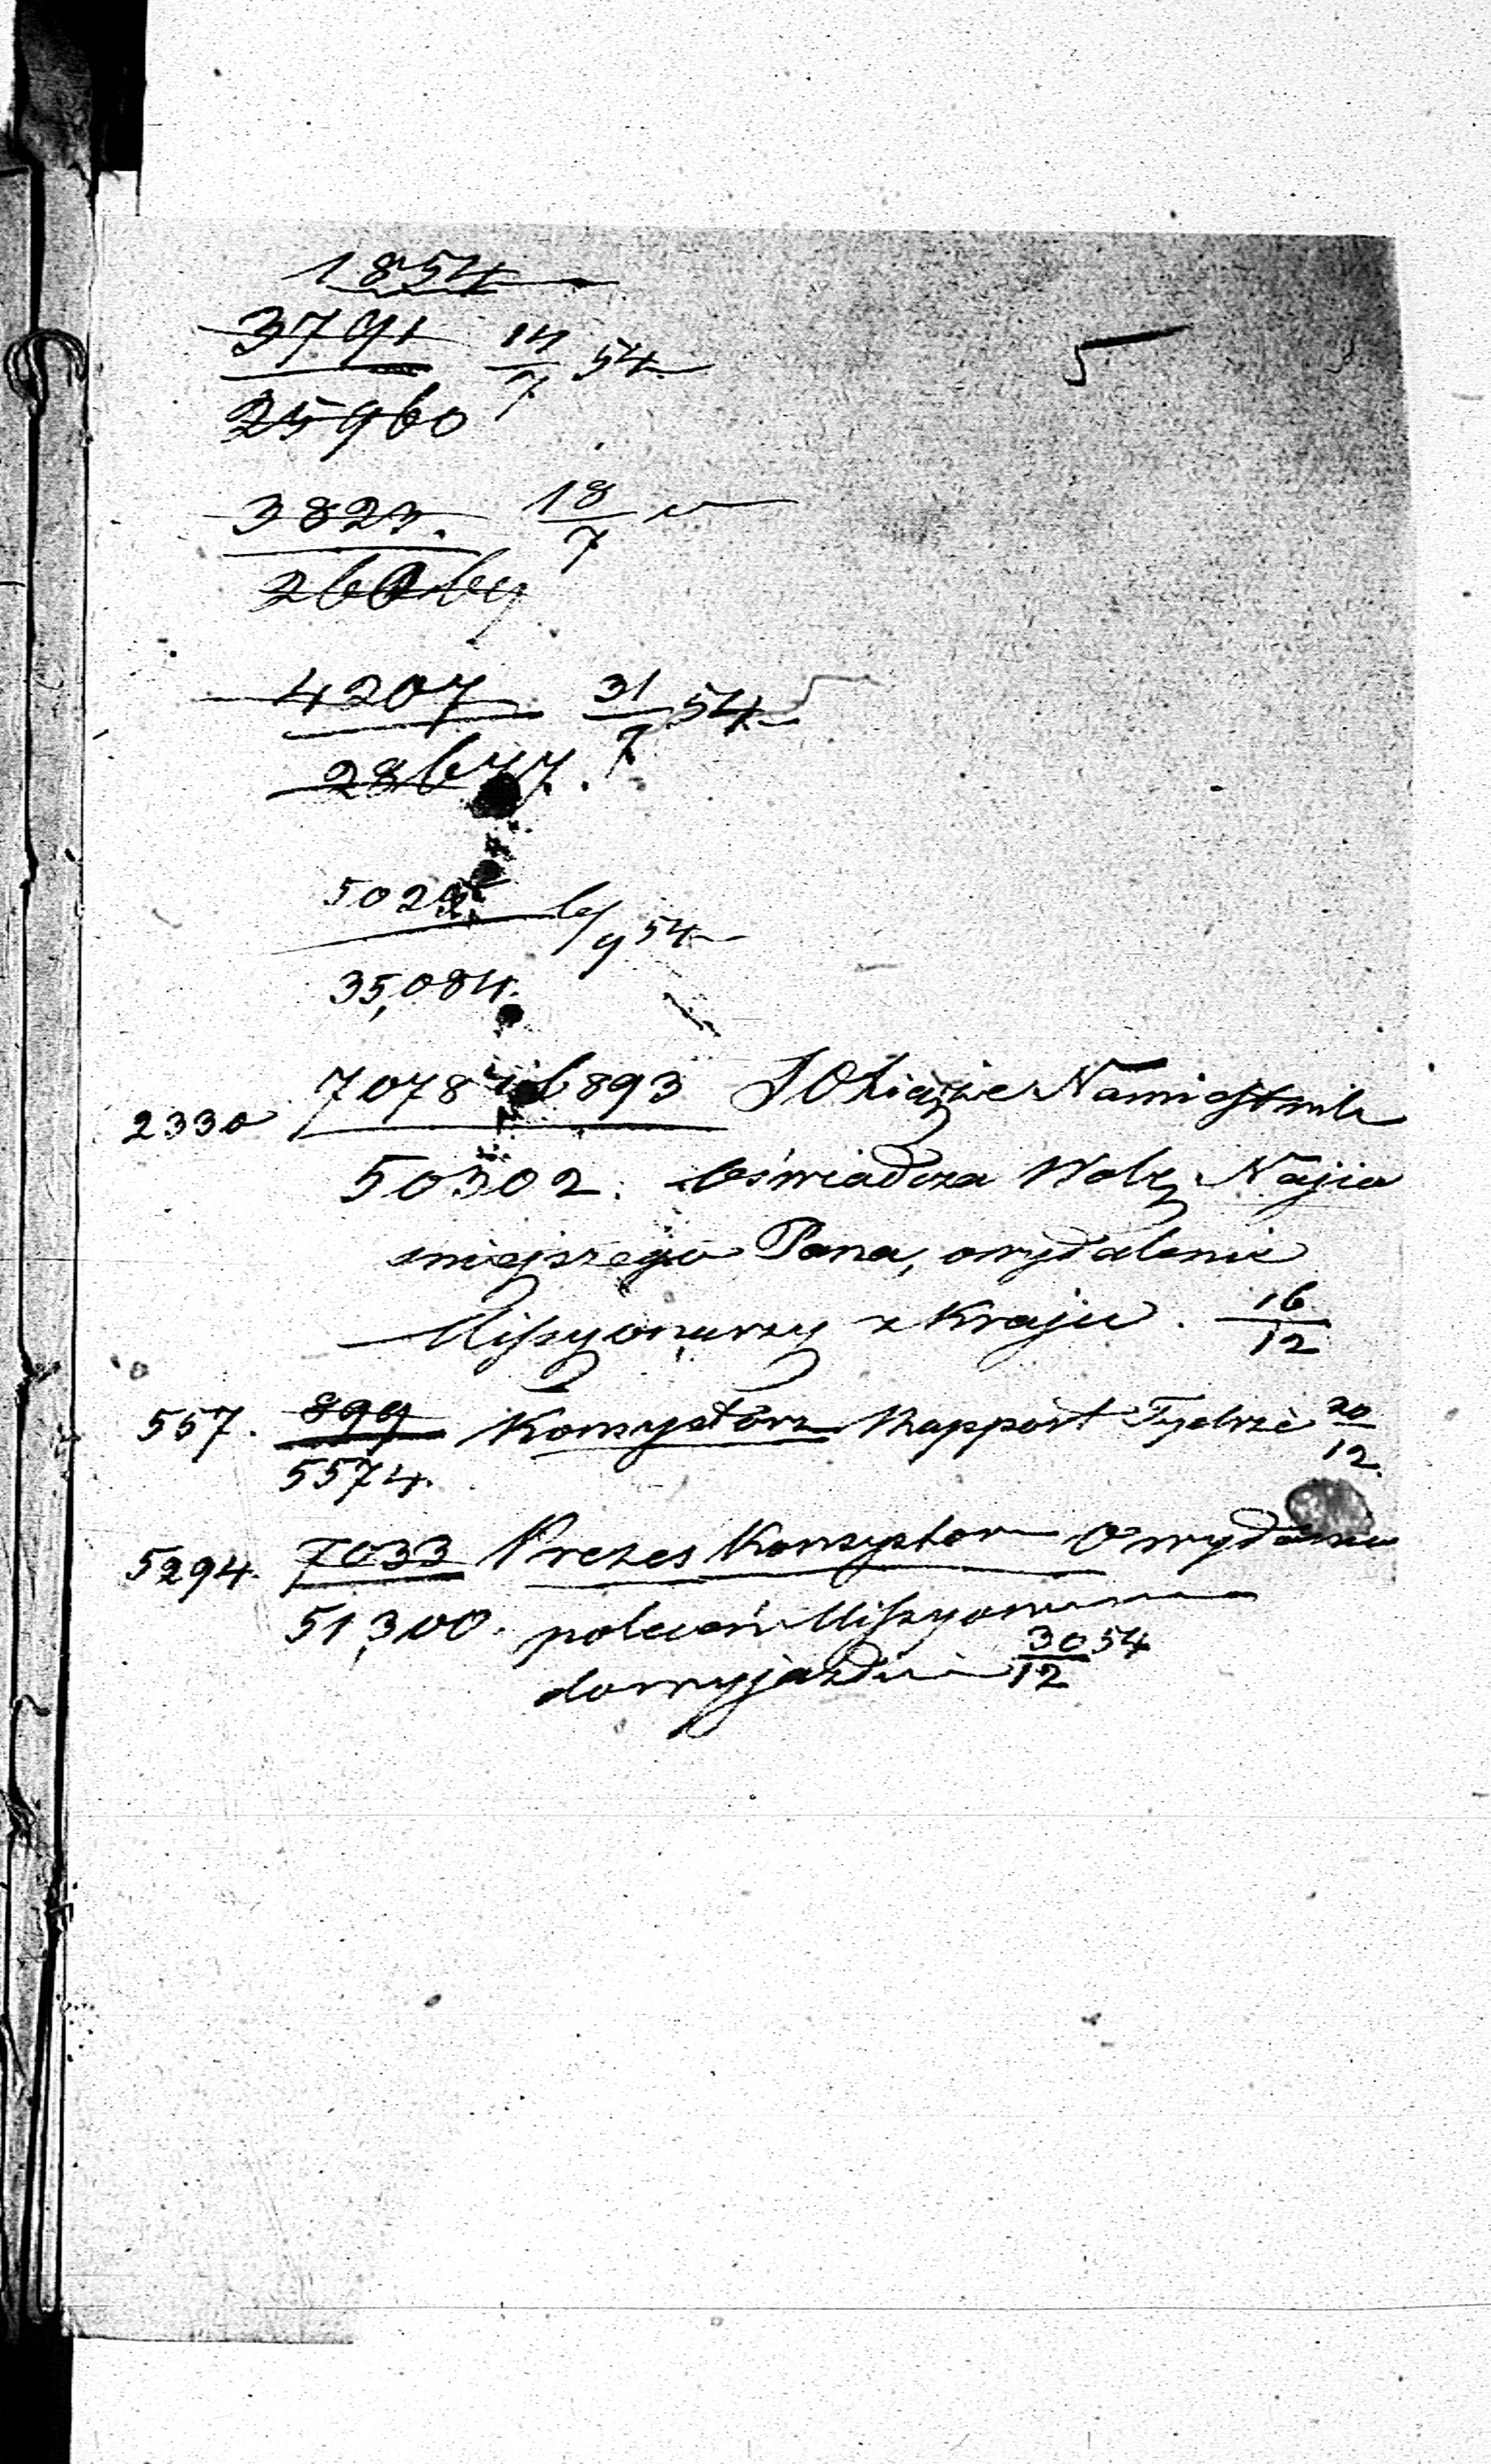 1854
5
3791 14/7 54
25960
3823. 18/7
4207 31/7 54
28677.
6/9 54
35,084.
2330 7078 6893 JO Xiąże Namiestnik
50302. Oświadcza Wolę Najia
śniejszego Pana, o wydalenie
Missyonarzy z Kraju. 16/12
557. 899 Konsystorz Rapport 20/12.
5574.
5294. 7033 Prezes Konsystorza O wydaniu
51,300. poleceń Missyonarzom
do wyjazdu 30/12 54